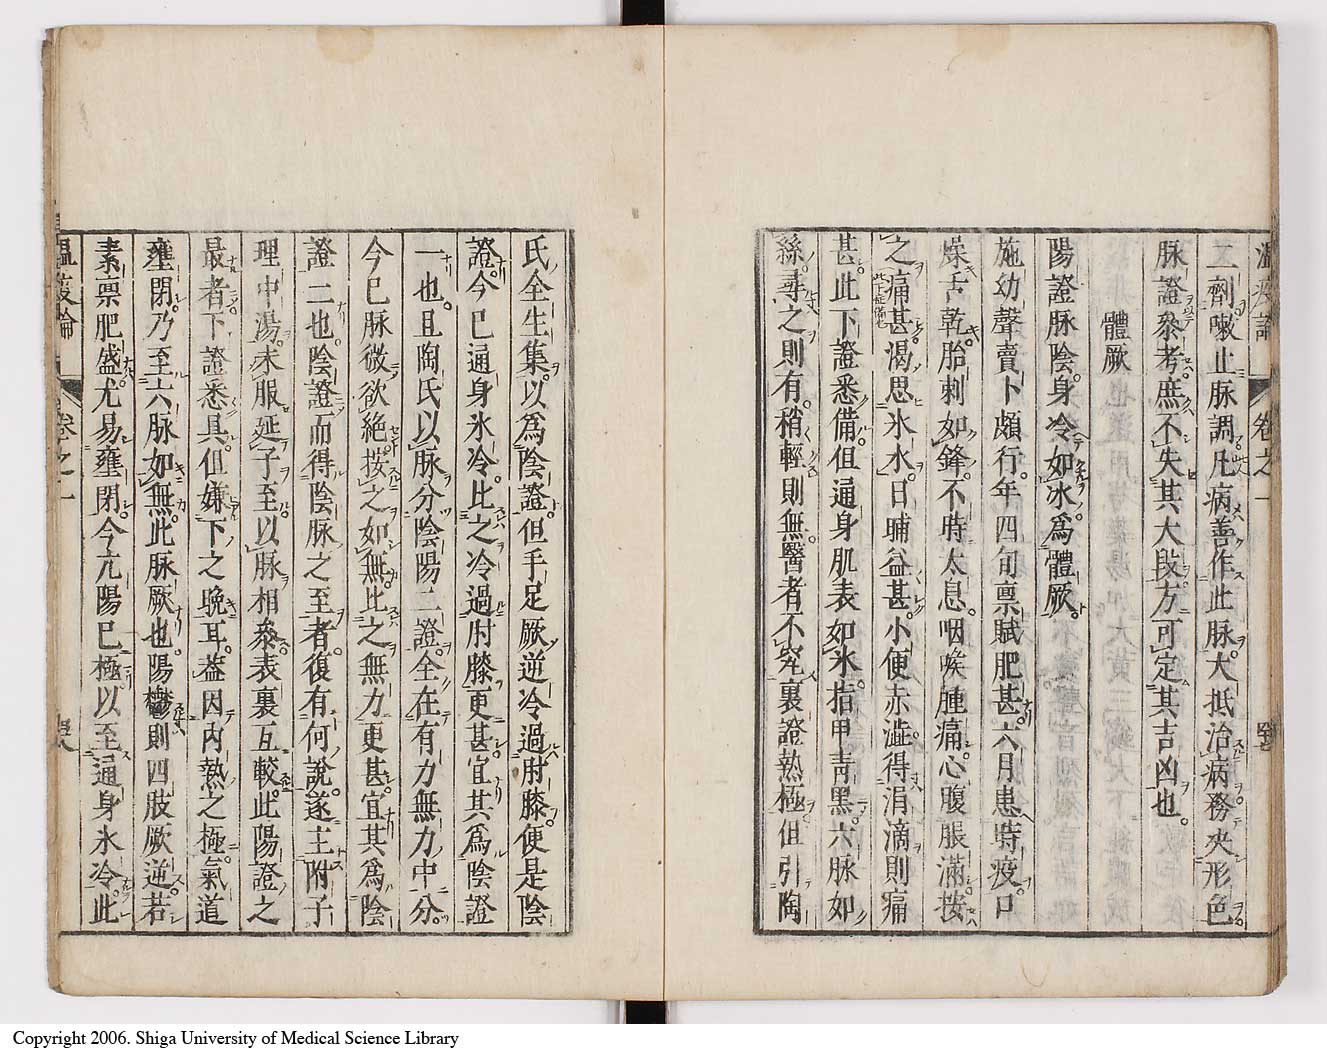 溫疫論 卷之一
二劑嗽止脉調凡病善作此脉大抵治病務夾形色
脉證叅考庶不失其大段方可定其吉凶也
體厥
陽證脉陰身冷如冰爲體厥
施幼聲賣卜頗行年四旬禀賦肥甚六月患時疫口
燥舌乾胎刺如鋒不時太息咽喉腫痛心腹脹滿按
之痛甚渴思氷水日晡益甚小便赤澁得涓滴則痛
甚此下證悉備但通身肌表如氷指甲青黑六脉如
絲尋之則有稍輕則無醫者不究裏證熱極但引陶
氏全生集以爲陰證但手足厥逆冷過肘膝便是陰
證今已通身氷冷比之冷過肘膝更甚宜其爲陰證
一也且陶氏以脉分陰陽二證全在有力無力中分
今已脉微欲絶按之如無比之無力更甚宜其爲陰
證二也陰證而得陰脉之至者復有何說遂主附子
理中湯未服延予至以脉相叅表裏互較此陽證之
最者下證悉具但嫌下之晚耳葢因内熱之極氣道
壅閉乃至六脉如無此脉厥也陽鬱則四肢厥逆若
素禀肥盛尤易壅閉今亢陽已極以至通身氷冷此
溫疫論 卷之一
Copyright 2006. Shiga University of Medical Science Library